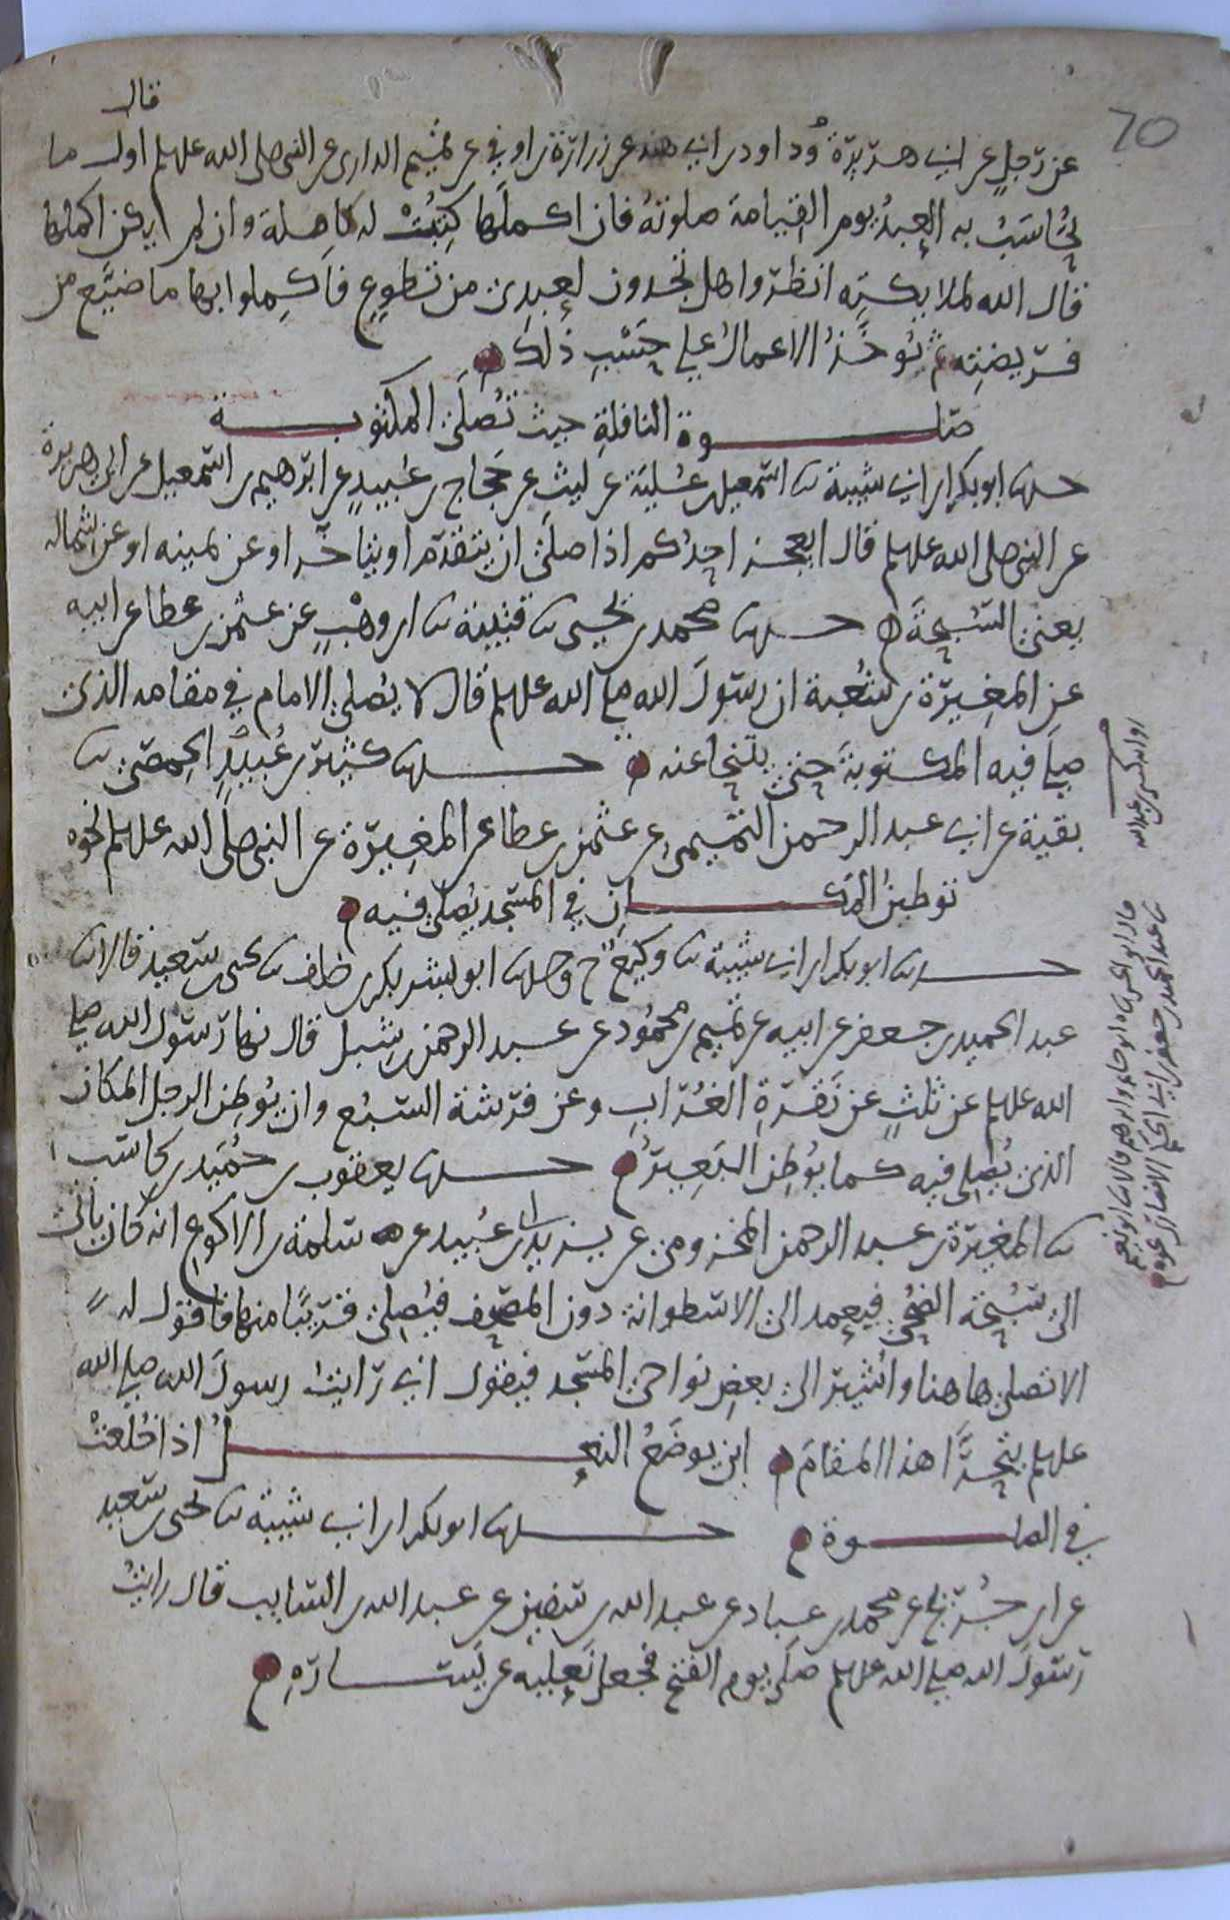 قال
عن رجل عن ابي هريرة وداود بن ابي هند عن زرارة بن اوفى عن تميم الداري عن النبي صلى الله علهلم اول ما
يُحَاسَبُ به العبدُ يوم القيامة صلوته فان اكملها كُتِبَتْ له كاملة وان لم يكن اكملها
قال الله لملايكته انظروا هل تجدون لعبدي من تطوع فاكملوا بها ما ضيّع من
فريضته ثم تُوخَذُ الاعمالُ على حَسَبِ ذلك
صلوة النافلةِ حيث تُصلى المكتوبة
حدثنا ابو بكر ابن ابي شيبة ثنا اسمعيل بن عُليّة عن ليث عن حجاج بن عُبيدٍ عن ابرهيم بن اسمعيل عن ابي هريرة
عن النبي صلى الله علهلم قال ايعجز احدُكم اذا صلى ان يتقدّم او يتاخّر او عن يمينه او عن شماله
يعني السُّبحةَ حدثنا محمد بن يحيى ثنا قتيبة ثنا ابن وَهْبٍ عن عثمن بن عطا عن ابيه
عن المغيرة بن شُعبة ان رسولَ الله صلى الله علهلم قال لا يُصلي الامام في مقامه الذي
صلى فيه المكتوبةَ حتى يتنحا عنه حدثنا كثير بن عُبيدٍ الحمصي ثنا
بقية عن ابي عبد الرحمن التميمي عن عثمن بن عطا عن المغيرة عن النبي صلى الله علهلم نحوه
توطينُ المكان في المسجد يُصلى فيه
حدثنا ابو بكر ابن ابي شيبة ثنا وكيعٌ ح وحدثنا ابو بشر بكر بن خلف ثنا يحيى بن سعيد قالا ثنا
عبد الحميد بن جعفر عن ابيه عن تميم بن محمُود عن عبد الرحمن بن شبل قال نها رسُول الله صلى
الله علهلم عن ثلثٍ عن نَقْرَةِ الغُرَابِ وعن فرشة السبُع وان يُوطِن الرجل المكان
الذي يُصلي فيه كما يُوطِن البَعِيرُ حدثنا يعقوب بن حُمَيد بن كاسب
ثنا المغيرة بن عبد الرحمن المخزومي عن يزيد بن ابي عُبيد عن سلمة بن الاكوع انه كان ياتي
الى سُبْحَة الضُّحَى فيعمد الى الاسطوانة دون المصحف فيُصلي قريبًا منها فاقول له
الا تصلي هاهنا واُشير الى بعضِ نواحي المسجد فيقول اني رايتُ رسولَ الله صلى الله
علهلم يتحرَّا هذا المقامَ اين يوضَعُ النعلُ اذا خُلعتْ
في الصلوة حدثنا ابو بكر ابن ابي شيبة ثنا يحيى بن سعيد
عن ابن جُريج عن محمد بن عباد عن عبد الله بن سفين عن عبد الله بن السايب قال رايتُ
رسُولَ الله صلى الله علهلم صلى يوم الفتح فجعل نَعليه عن يَسَارِهِ
70
قال ابو الحسن ثنا ابو حاتم وابرهيم قالا ثنا ابو نعيم
ثنا عبد الحميد بن جعفر ابن ابي الحكم الانصاري نحوه